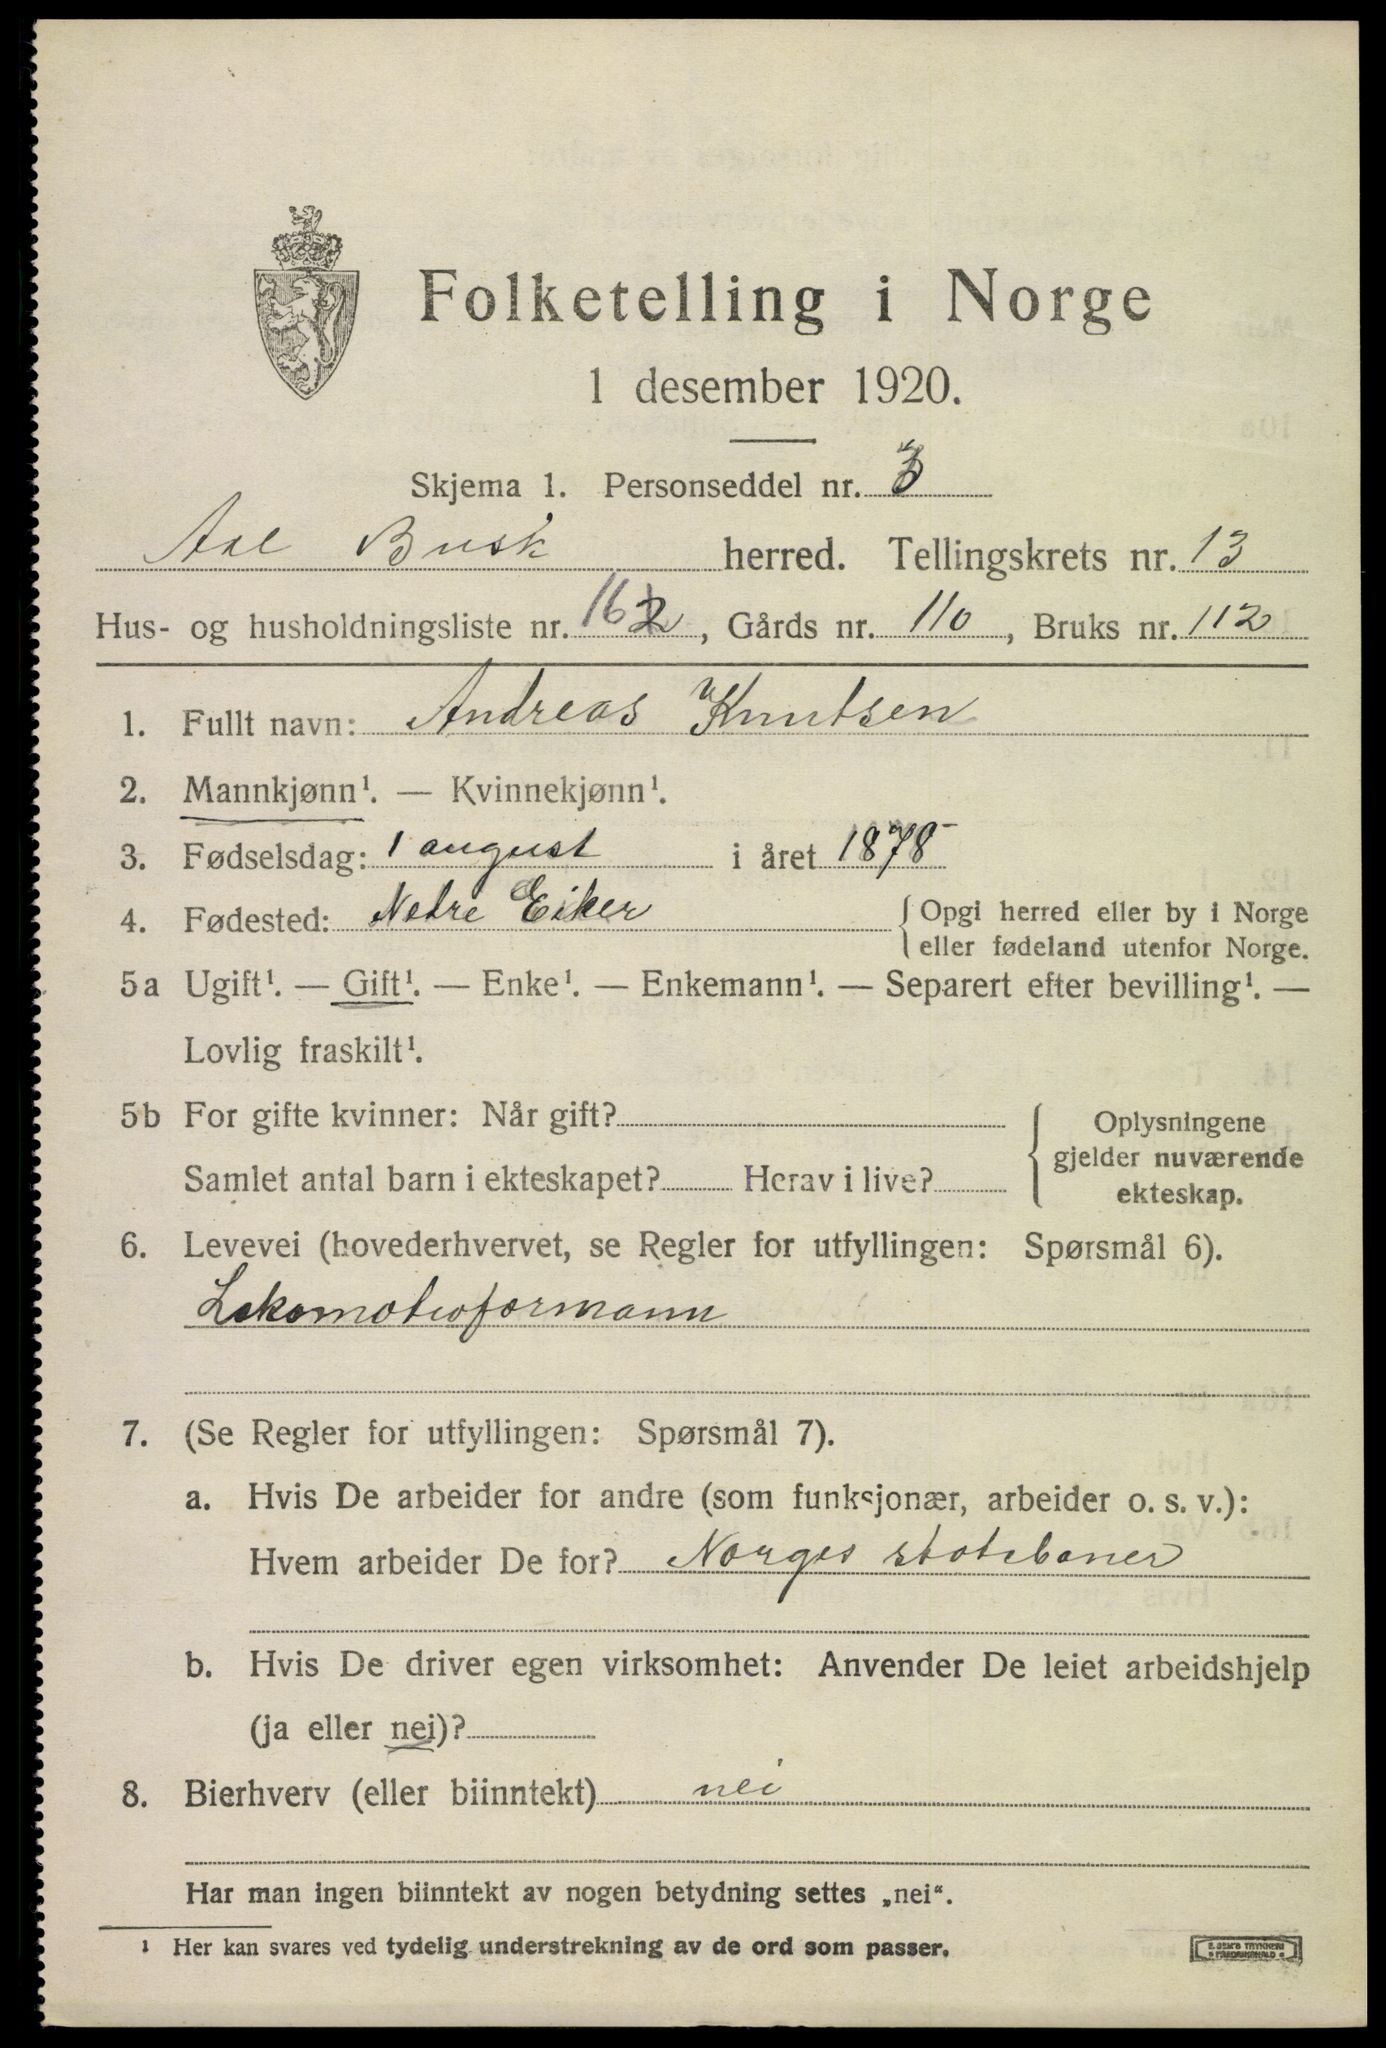 Folketelling i Norge
1 desember 1920.
Skjema 1. Personseddel nr. 3
Aal Busk herred. Tellingskrets nr. 13
Hus- og husholdningsliste nr. 162, Gårds nr. 110, Bruks nr. 112
1. Fullt navn: Andreas Knutsen
2. Mannkjønn¹. — Kvinnekjønn¹.
3. Fødselsdag: 1 august i året 1878
4. Fødested: Nedre Eiker { Opgi herred eller by i Norge
eller fødeland utenfor Norge.
5a Ugift¹. — Gift¹. — Enke¹. — Enkemann¹. — Separert efter bevilling¹. —
Lovlig fraskilt¹.
5b For gifte kvinner: Når gift? { Oplysningene
gjelder nuværende
Samlet antal barn i ekteskapet? Herav i live?
ekteskap.
6. Levevei (hovederhvervet, se Regler for utfyllingen: Spørsmål 6).
Lokomotivformann
7. (Se Regler for utfyllingen: Spørsmål 7).
a. Hvis De arbeider for andre (som funksjonær, arbeider o. s. v.):
Hvem arbeider De for? Norges statsbaner
b. Hvis De driver egen virksomhet: Anvender De leiet arbeidshjelp
(ja eller nei)?
8. Bierhverv (eller biinntekt) nei
Har man ingen biinntekt av nogen betydning settes „nei“.
¹ Her kan svares ved tydelig understrekning av de ord som passer.